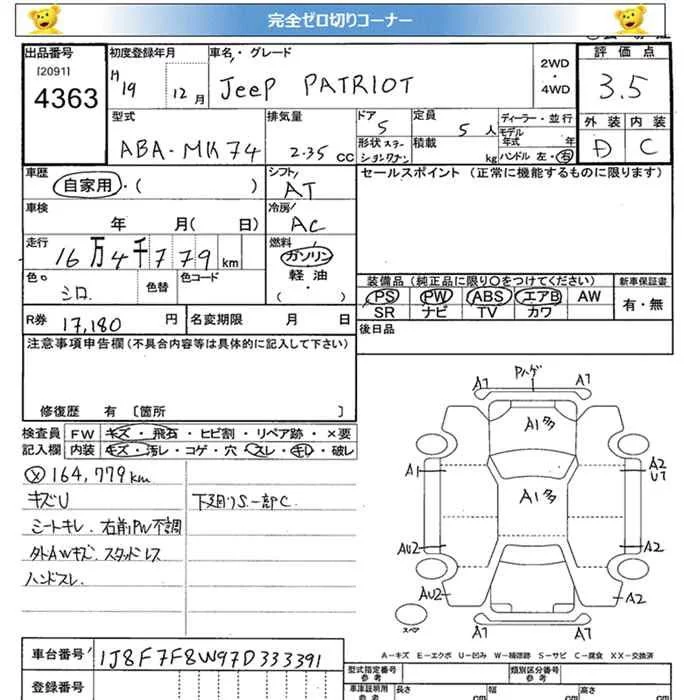 完全ゼロ切りコーナー
出品番号 初度登録年月 車名・グレード 2WD・4WD 評価点
[20911]
4363 H19 12月 Jeep PATRIOT 3.5
型式 排気量 ドア 定員 ディーラー・並行 外装 内装
ABA-MK74 2.35 CC 5 5人 モデル年式 年 D C
形状 ステーションワゴン 積載 kg ハンドル 左・右
車歴 自家用・( ) シフト AT セールスポイント(正常に機能するものに限ります)
車検 年 月( 日) 冷房 AC
走行 16万4千779km 燃料 ガソリン
色 シロ 色替 色コード 軽油 ( ・ )
装備品(純正品に限り○をつけてください) 新車保証書
PS PW ABS エアB AW 有・無
SR ナビ TV カワ
R券 17,180円 名変期限 月 日 後日品
注意事項申告欄(不具合内容等は具体的に記入して下さい)
修復歴 有 [箇所 ]
検査員 FW キズ・飛石・ヒビ割・リペア跡・×要
記入欄 内装 キズ・汚レ・コゲ・穴・スレ・キレ・破レ
ⓧ164,779km
キズU 下廻りS.一部C.
シートキレ.右前PW不調
外AWキズ.スタッドレス
ハンドスレ.
A1 Pハゲ A1
A1多
A1 A2
U1
A1多
AU2 A2
AU2 A2
スペア A1 A1
A-キズ E-エクボ U-凹み W-補修跡 S-サビ C-腐食 XX-交換済
車台番号 1J8F7F8W97D333391
型式指定番号 参考 類別区分番号 参考
登録番号 車庫証明用 参考 長さ cm 幅 cm 高さ cm